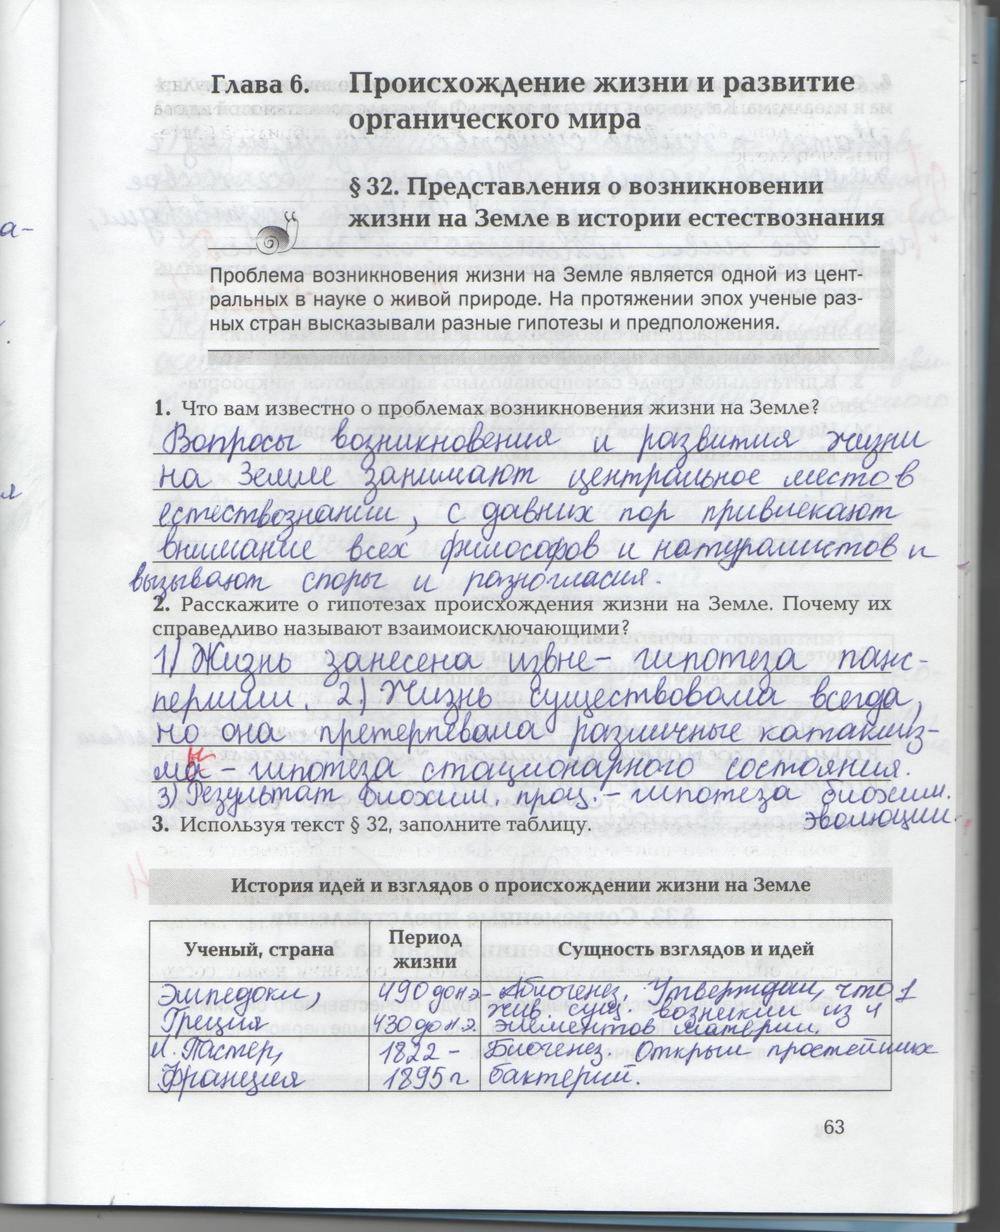 Глава 6. Происхождение жизни и развитие
органического мира
§ 32. Представления о возникновении
жизни на Земле в истории естествознания
а-
Проблема возникновения жизни на Земле является одной из цент-
ральных в науке о живой природе. На протяжении эпох ученые раз-
ных стран высказывали разные гипотезы и предположения.
1. Что вам известно о проблемах возникновения жизни на Земле?
Вопросы возникновения и развития жизни
на Земле занимают центральное место в
я
естествознании, с давних пор привлекают
внимание всех философов и натуралистов и
вызывают споры и разногласия.
2. Расскажите о гипотезах происхождения жизни на Земле. Почему их
справедливо называют взаимоисключающими?
1) Жизнь занесена извне – гипотеза панс-
пермии. 2.) Жизнь существовала всегда,
но она претерпевала различные катаклиз-
мы – гипотеза стационарного состояния.
3) Результат биохим. проц. – гипотеза биохим.
эволюции.
3. Используя текст § 32, заполните таблицу.
История идей и взглядов о происхождении жизни на Земле
Ученый, страна
Период
жизни
Сущность взглядов и идей
Эмпедокл,
Греция
490 до н.э –
430 до н.э.
Абиогенез. Утверждал, что
жив. сущ. возникли из 4
элементов материи.
Л. Пастер,
Франция
1822 –
1895 г
Биогенез. Открыл простейших
бактерий.
63